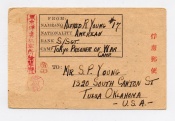 FROM:
NAME: ALFRED R. YOUNG #17
NATIONALITY: AMERICAN
RANK: S/SGT.
CAMP: TOKYO PRISONER OF WAR CAMP
TO:
MR. S. P. YOUNG
1320 SOUTH CANTON ST
TULSA OKLAHOMA
- U.S.A. -